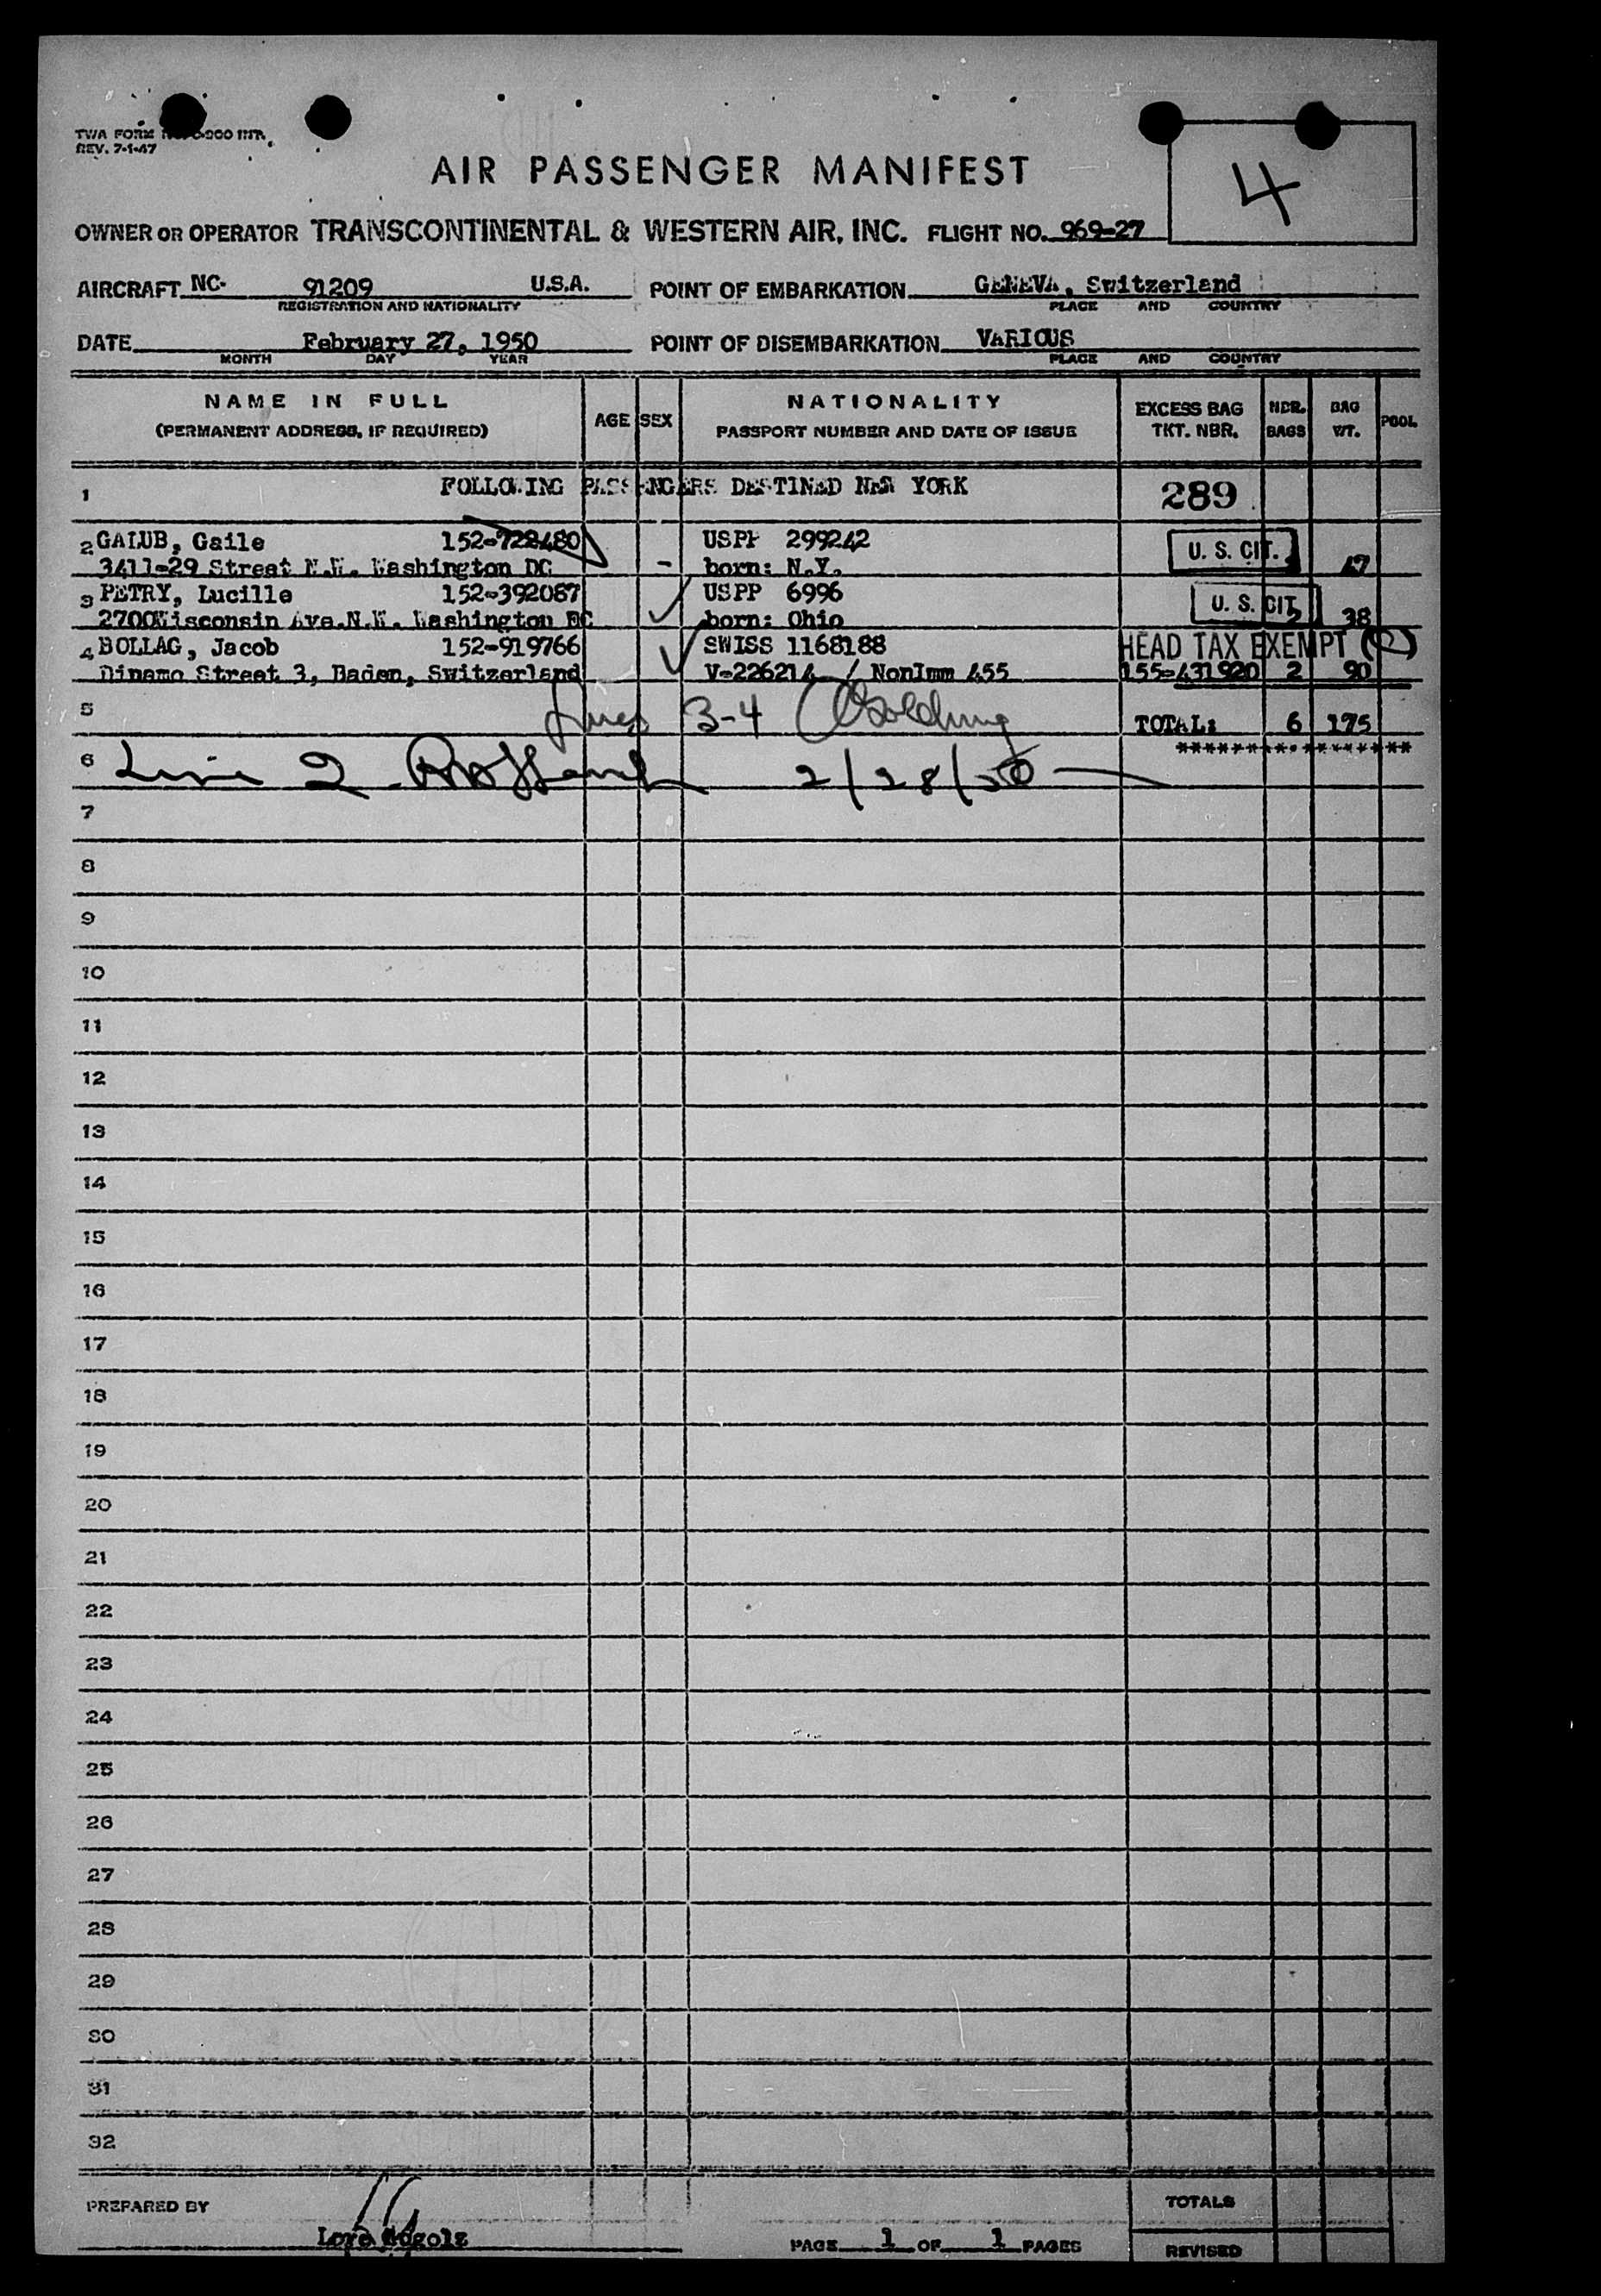 TWA FORM 200 INT.
REV. 7-1-47
4
AIR PASSENGER MANIFEST
OWNER OR OPERATOR TRANSCONTINENTAL & WESTERN AIR, INC. FLIGHT NO. 969-27
AIRCRAFT NC- 91209 U.S.A. POINT OF EMBARKATION GENEVA, Switzerland
REGISTRATION AND NATIONALITY PLACE AND COUNTRY
DATE February 27, 1950 POINT OF DISEMBARKATION VARIOUS
MONTH DAY YEAR PLACE AND COUNTRY
NAME IN FULL AGE SEX NATIONALITY EXCESS BAG NBR. BAG POOL
(PERMANENT ADDRESS, IF REQUIRED) PASSPORT NUMBER AND DATE OF ISSUE TKT. NBR. BAGS WT.
1 FOLLOWING PASSENGERS DESTINED NEW YORK 289
2 GALUB, Gaile 152-728480 USPP 299242 U. S. CIT.
3411-29 Street N.W. Washington DC - born: N.Y. 47
3 PETRY, Lucille 152-392087 USPP 6996 U. S. CIT.
2700Wisconsin Ave.N.W. Washington DC born: Ohio 2 38
4 BOLLAG, Jacob 152-919766 SWISS 1168188 HEAD TAX EXEMPT
Dinamo Street 3, Baden, Switzerland V-226214 / NonImm 455 155-431920 2 90
5 Lines 3-4 Golding TOTAL: 6 175
6 Line 2 2/28/50 ****************
7
8
9
10
11
12
13
14
15
16
17
18
19
20
21
22
23
24
25
26
27
28
29
30
31
32
PREPARED BY TOTALS
PAGE 1 OF 1 PAGES REVISED